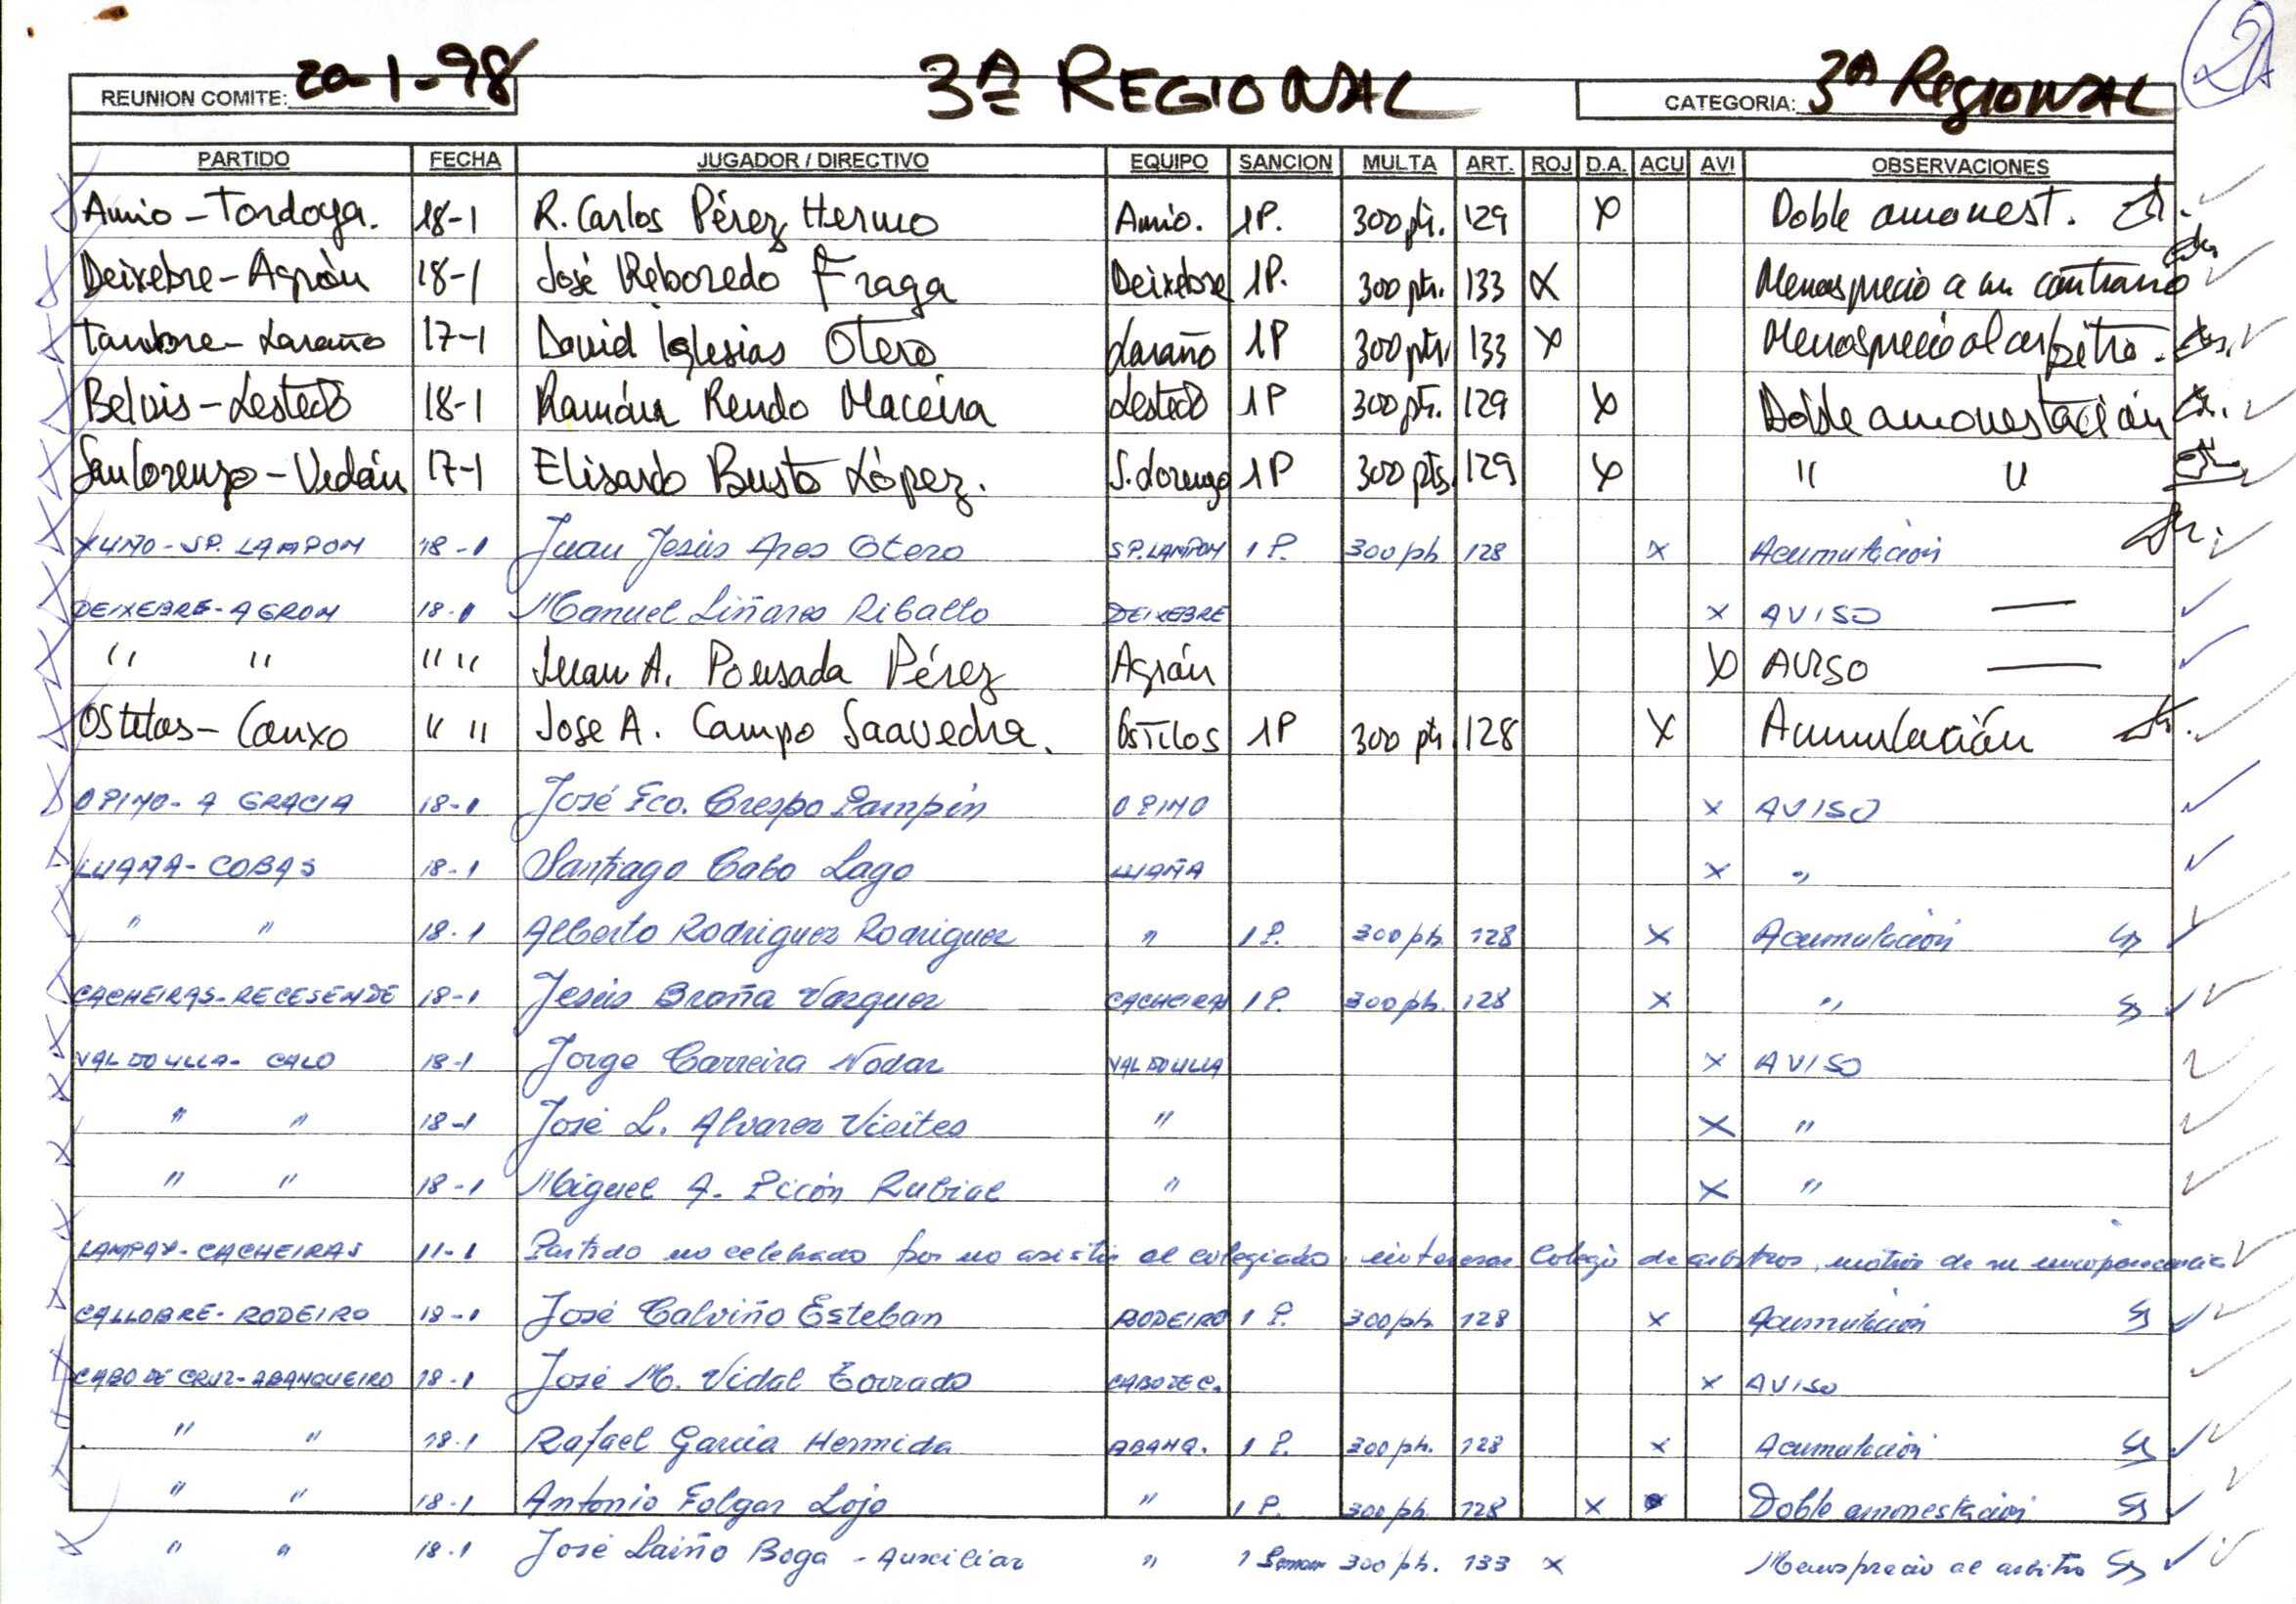 2A
REUNION COMITE: 20-1-98 3ª REGIONAL CATEGORIA: 3ª REGIONAL
PARTIDO FECHA JUGADOR / DIRECTIVO EQUIPO SANCION MULTA ART. ROJ D.A. ACU AVI OBSERVACIONES
Amio - Tordoya. 18-1 R. Carlos Pérez Hermo Amio. 1P. 300 pts. 129 X Doble amonest.
Deixebre - Agrón 18-1 José Reboredo Fraga Deixebre 1P. 300 pts. 133 X Menosprecio a un contrario
Tambre - Laraño 17-1 David Iglesias Otero Laraño 1P 300 pts. 133 X Menosprecio al arbitro.
Belvis - Lestedo 18-1 Ramón Rendo Maceira Lestedo 1P 300 pts. 129 X Doble amonestación
San Lorenzo - Vedán 17-1 Elisardo Busto López. S. Lorenzo 1P 300 pts. 129 X " "
XUNO - SP. LAMPON 18-1 Juan Jesús Ares Otero SP. LAMPON 1 P. 300 pts. 128 X Acumulación
DEIXEBRE - AGRON 18-1 Manuel Liñares Riballo DEIXEBRE X AVISO —
" " " " Juan A. Pousada Pérez Agrón X AVISO —
Ostilos - Conxo " " Jose A. Campo Saavedra. Ostilos 1P 300 pts 128 X Acumulación
O PINO - A GRACIA 18-1 José Fco. Crespo Pampín O PINO X AVISO
LUAÑA - COBAS 18-1 Santiago Cabo Lago LUAÑA X "
" " 18-1 Alberto Rodriguez Rodriguez " 1 P. 300 pts. 128 X Acumulación
CACHEIRAS - RECESENDE 18-1 Jesús Braña Vazquez CACHEIRAS 1 P. 300 pts. 128 X "
VAL DO ULLA - CALO 18-1 Jorge Carreira Nodar VAL DO ULLA X AVISO
" " 18-1 José L. Alvarez Vieites " X "
" " 18-1 Miguel A. Picón Rubial " X "
LAMPAY - CACHEIRAS 11-1 Partido no celebrado por no asistir el colegiado, interesar Colegio de arbitros, motivo de su incomparecencia
CALLOBRE - RODEIRO 18-1 José Calviño Esteban RODEIRO 1 P. 300 pts. 128 X Acumulación
CABO DE CRUZ - ABANQUEIRO 18-1 José M. Vidal Torrado CABO DE C. X AVISO
" " 18-1 Rafael García Hermida ABANQ. 1 P. 300 pts. 128 X Acumulación
" " 18-1 Antonio Folgar Lojo " 1 P. 300 pts. 128 X Doble amonestación
" " 18-1 José Laiño Boga - Auxiliar " 1 Seman 300 pts. 133 X Menosprecio al arbitro